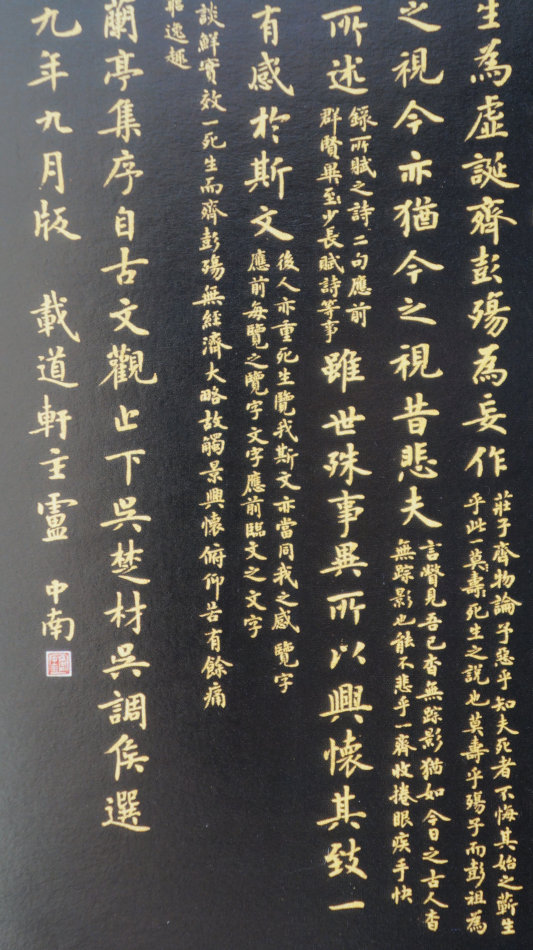 生為虛誕齊彭殤為妄作
莊子齊物論予惡乎知夫死者不悔其始之蘄生
乎此一莫壽死生之說也莫壽乎殤子而彭祖為
之視今亦猶今之視昔悲夫
言瞥見吾已杳無踪影猶如今日之古人杳
無踪影也能不悲乎一齊收捲眼疾手快
所述
錄所賦之詩二句應前
群賢畢至少長賦詩等事
雖世殊事異所以興懷其致一
有感於斯文
後人亦重死生覽我斯文亦當同我之感覽字
應前每覽之覽字文字應前臨文之文字
談鮮實效一死生而齊彭殤無經濟大略故觸景興懷俯仰苦有餘痛
逸趣
蘭亭集序自古文觀止下吳楚材吳調侯選
九年九月版 載道軒主盧中南